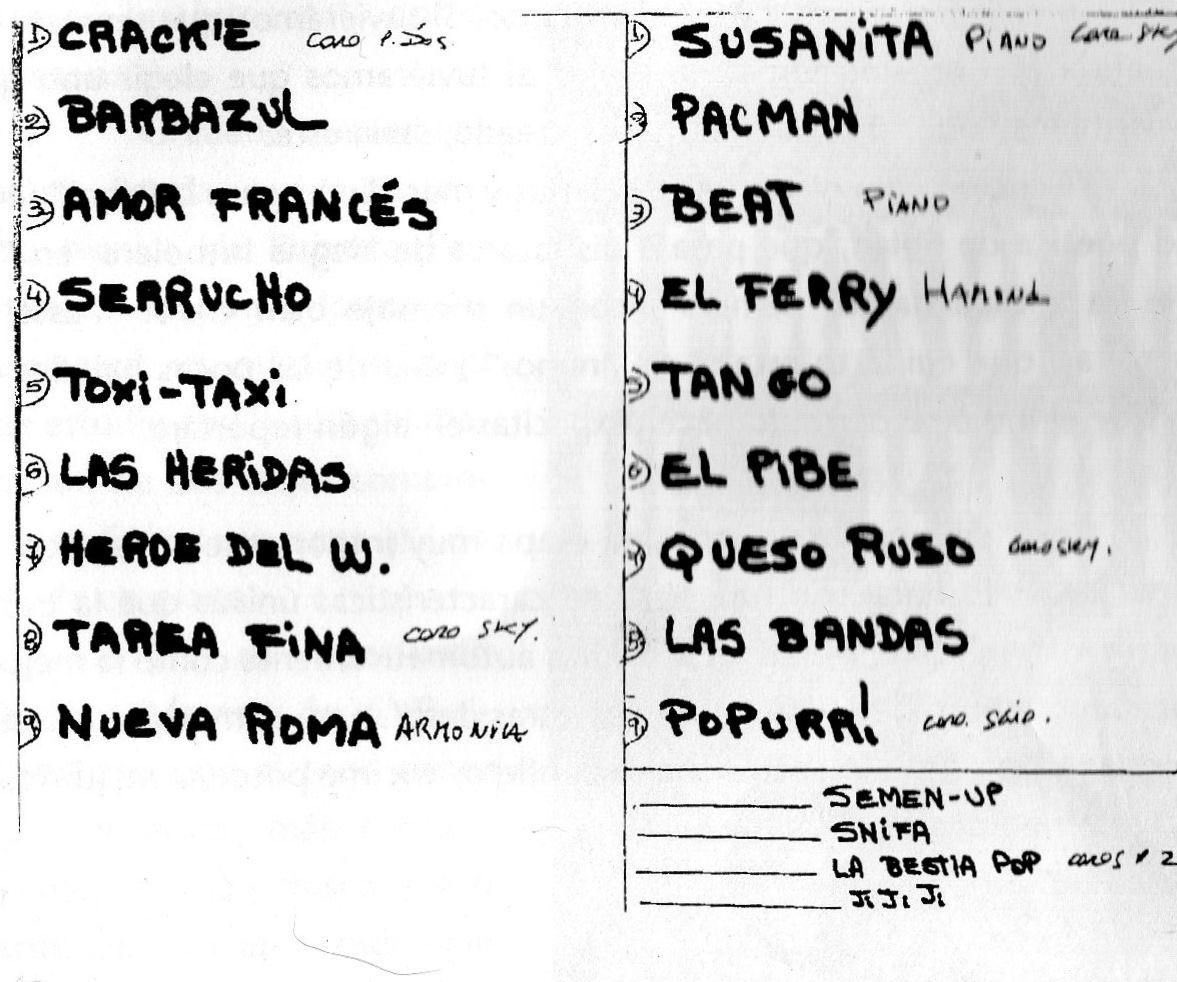 1) CRACK'E CORO P. DOS.
2) BARBAZUL
3) AMOR FRANCÉS
4) SERRUCHO
5) TOXi-TAXi
6) LAS HERiDAS
7) HEROE DEL W.
8) TAREA FiNA CORO SKY.
9) NUEVA ROMA ARMONICA
1) SUSANiTA PiANO CORO SKY
2) PACMAN
3) BEAT PiANO
4) EL FERRY
5) TANGO
6) EL PiBE
7) QUESO RUSO CORO SKY.
8) LAS BANDAS
9) POPURRi CORO.
SEMEN-UP
SNiFA
LA BESTIA POP COROS # 2
Ji Ji Ji